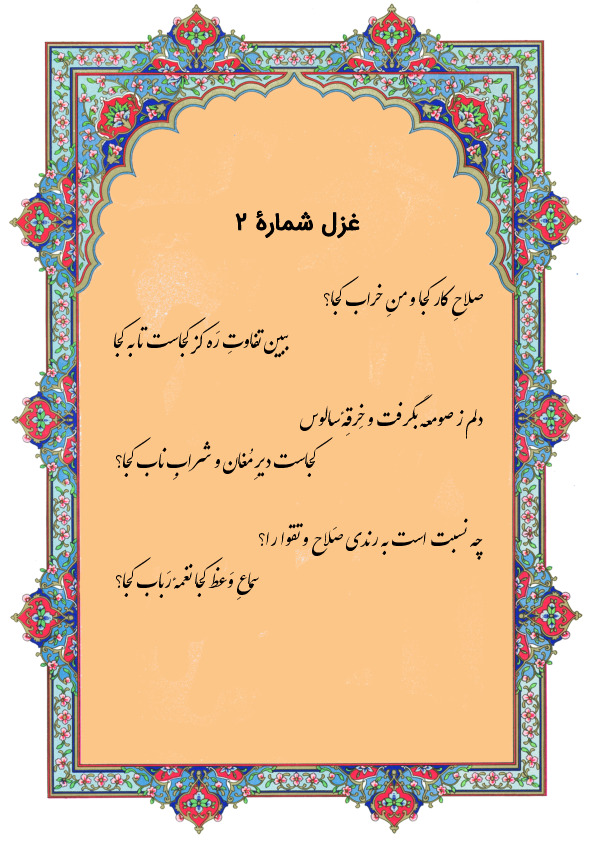 غزل شمارهٔ ۲
صلاحِ کار کجا و منِ خراب کجا؟
ببین تفاوتِ رَه کز کجاست تا به کجا
دلم ز صومعه بگرفت و خِرقِهٔ سالوس
کجاست دیرِ مُغان و شرابِ ناب کجا؟
چه نسبت است به رندی صَلاح و تقوا را؟
سماعِ وَعظ کجا نغمهٔ رَباب کجا؟